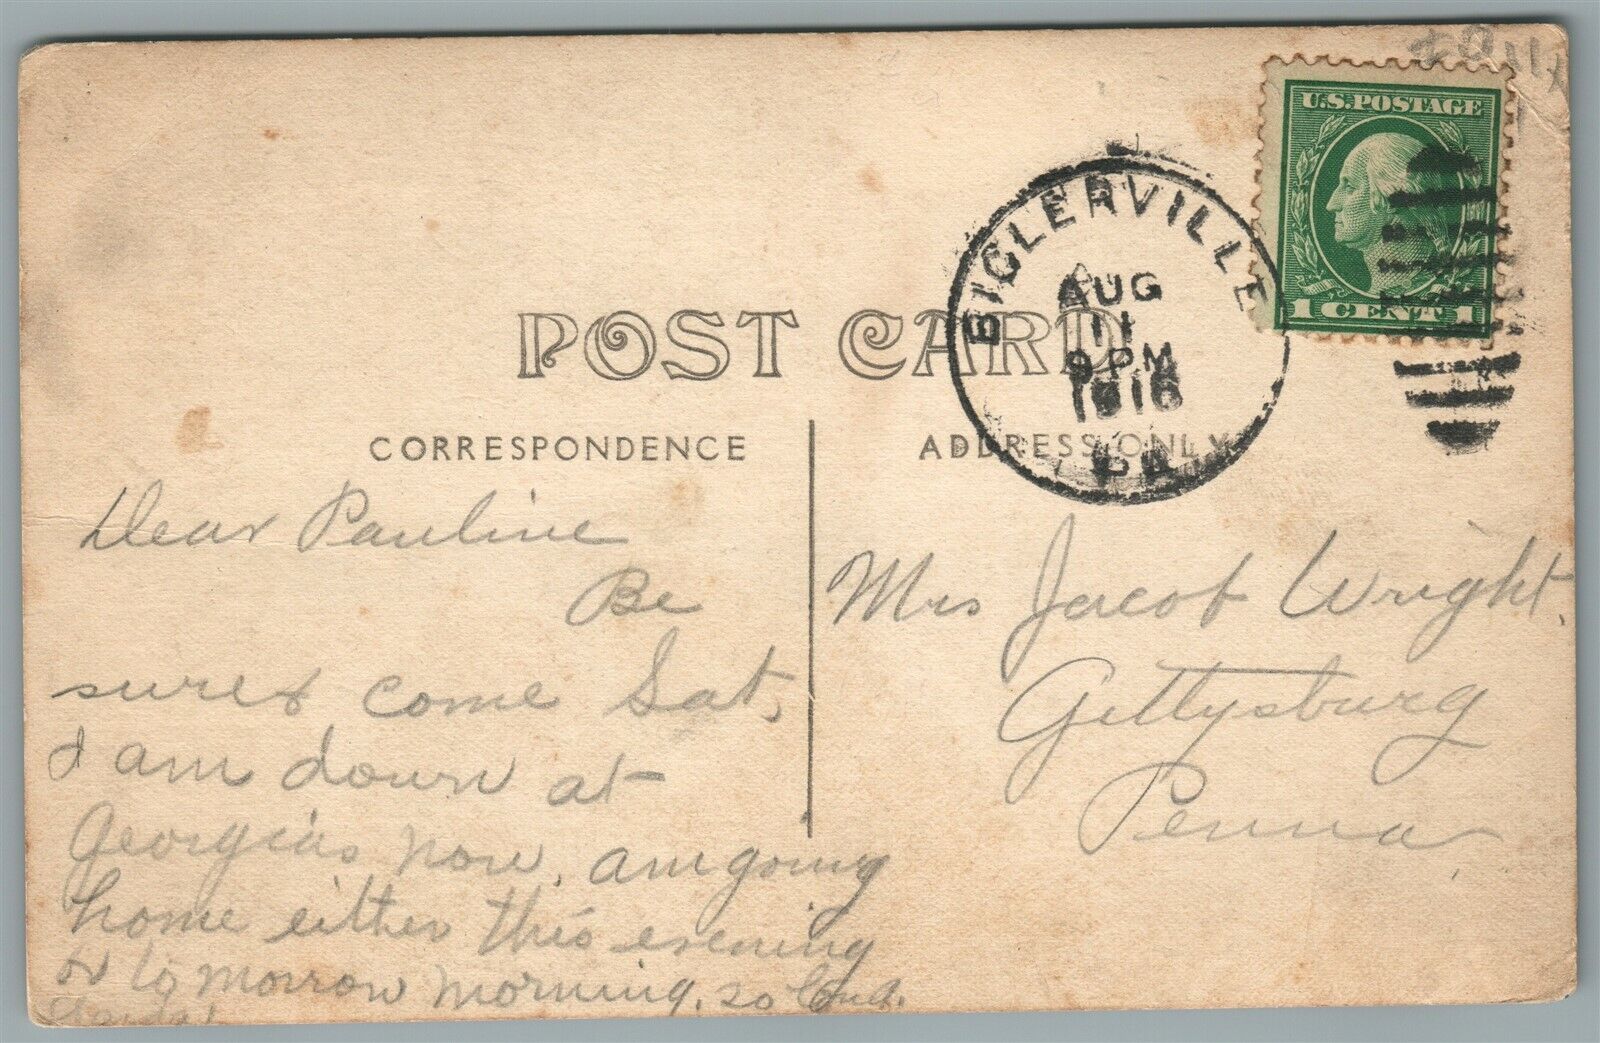 U.S. POSTAGE
1 CENT 1
BIGLERVILLE
AUG
11
9 PM
1916
PA
POST CARD
CORRESPONDENCE
ADDRESS ONLY
Dear Pauline
Be
sure & come Sat,
I am down at
Georgia's now, am going
home either this evening
or to morrow morning. so
Mrs Jacob Wright.
Gettysburg
Penna